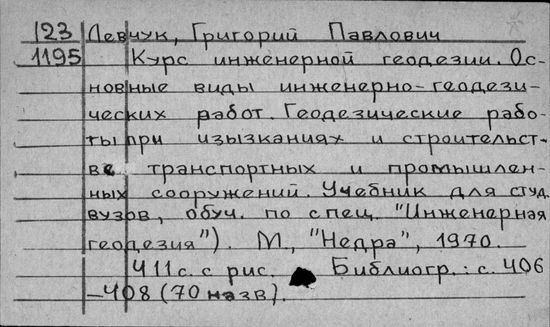 123 Левчук, Григорий Павлович
1195 Курс инженерной геодезии. Ос-
новные виды инженерно-геодези-
ческих работ. Геодезические рабо-
ты при изызканиях и строительст-
ве транспортных и промышлен-
ных сооружений. Учебник для студ.
вузов, обуч. по спец. "Инженерная
геодезия"). М., "Недра", 1970.
411с. с рис. Библиогр.: с. 406
-408 (70 назв).